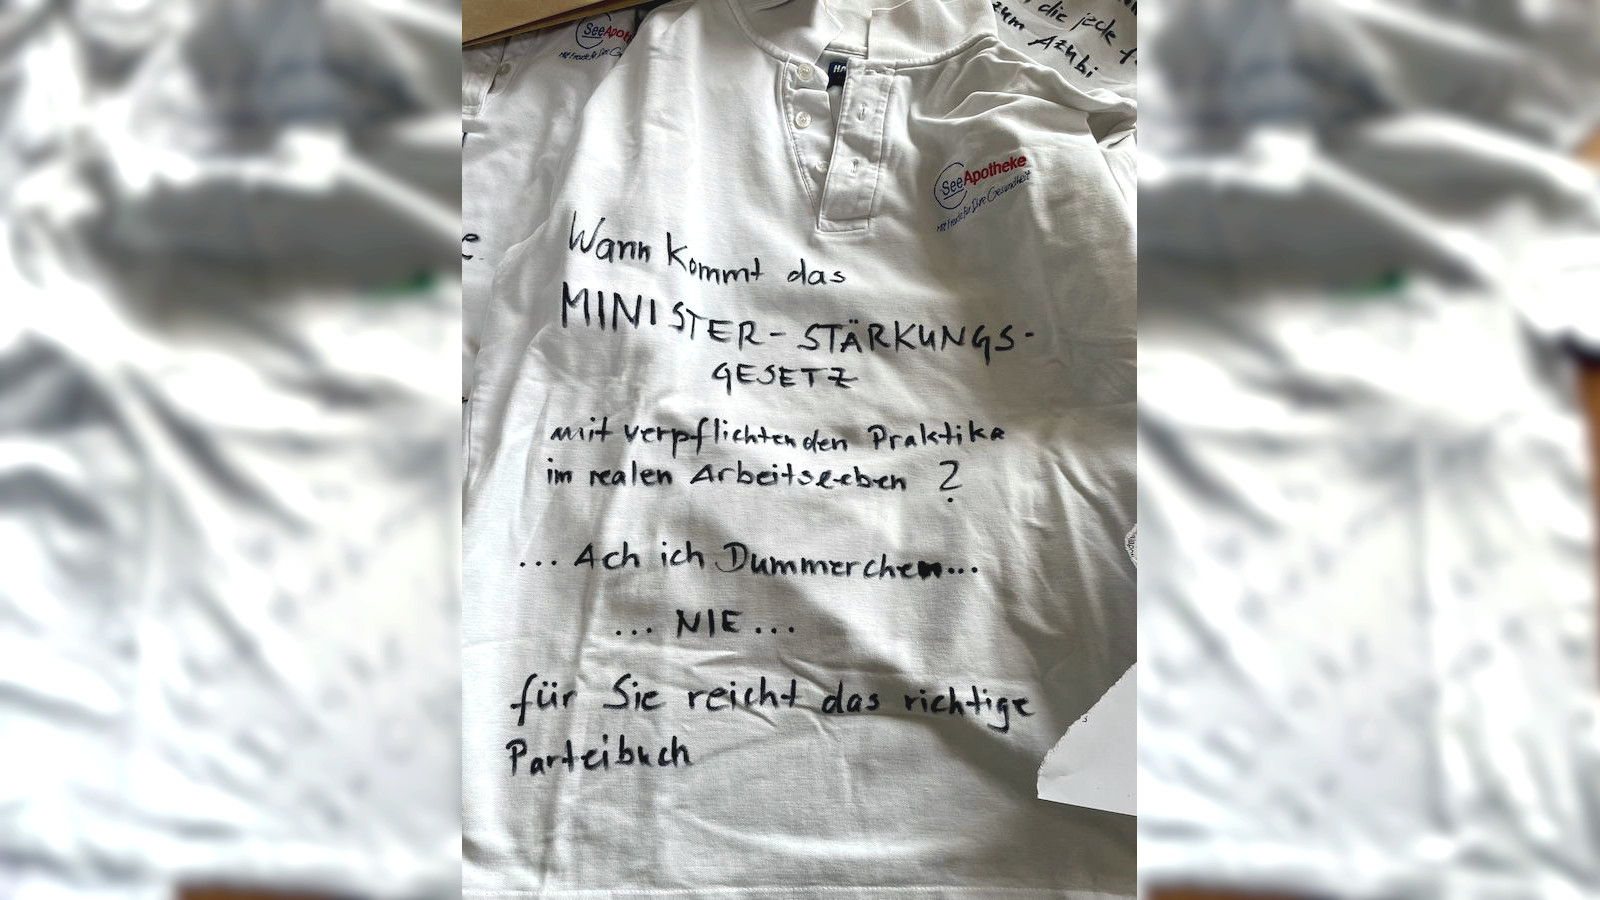 SeeApothe
die jede f
zum Azubi
HA
SeeApotheke
Mit Freude für Ihre Gesundheit
e
Wann kommt das
MINISTER-STÄRKUNGS-
GESETZ
mit verpflichtenden Praktika
im realen Arbeitsleben ?
... Ach ich Dummerchen...
... NIE ...
für Sie reicht das richtige
Parteibuch